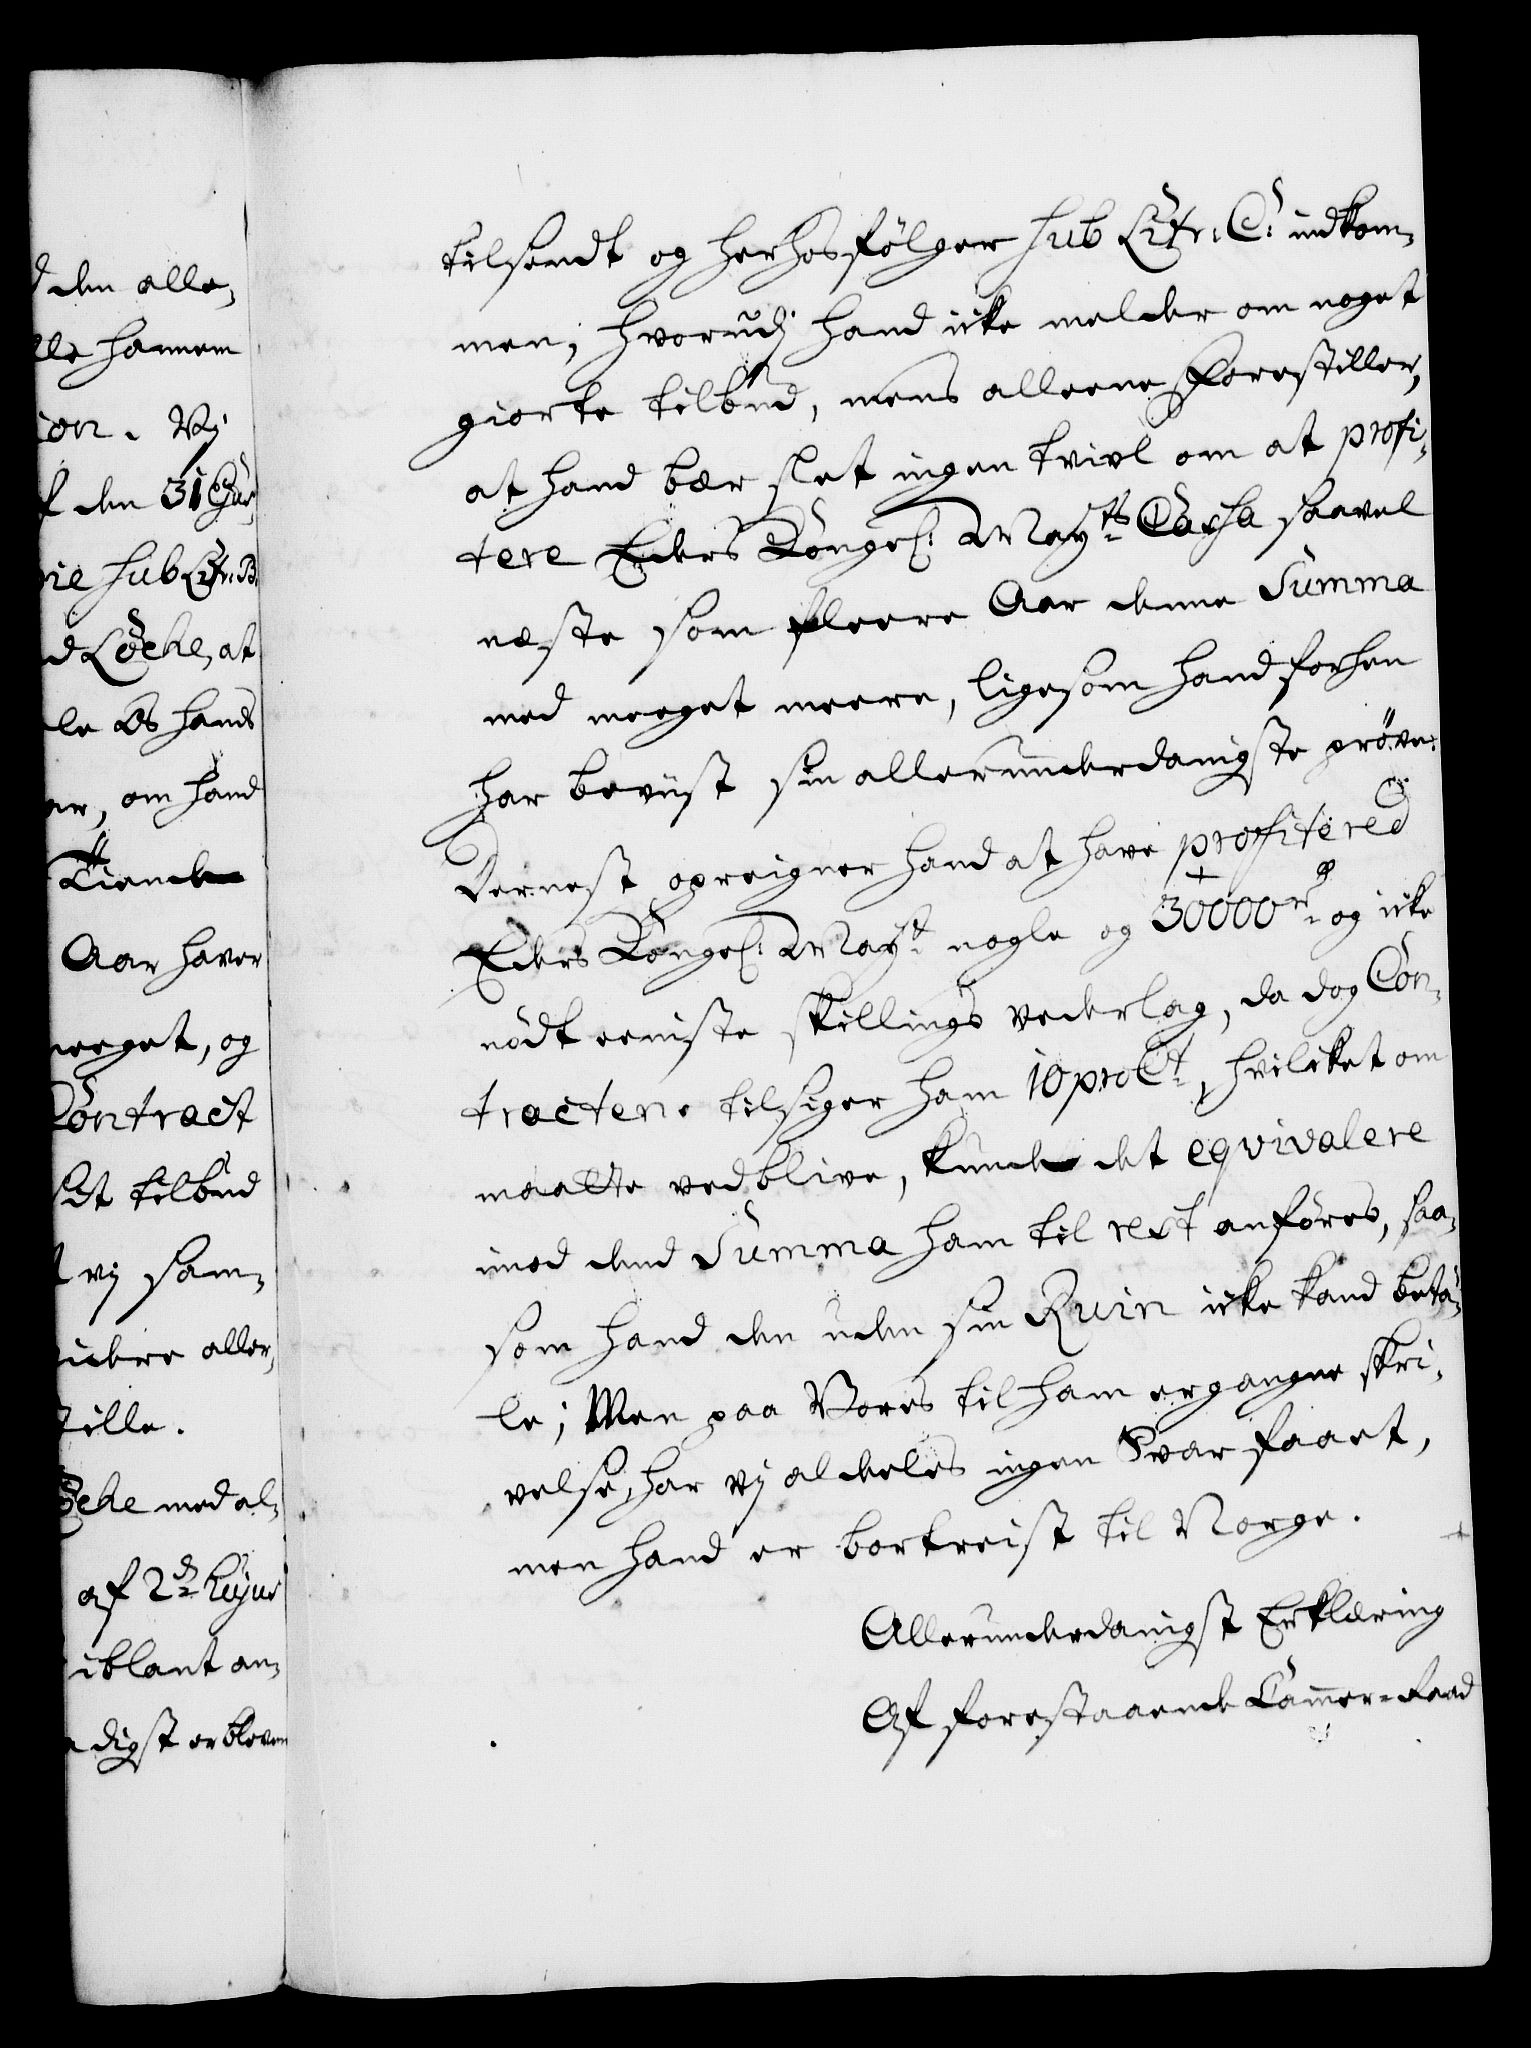 d den alle,
lle hannem
ion. Vj
f den 31 Hujus
pie sub Litr: B.
d Löche, at
le Os hands
ar, om hand
Tiende
Aar haver
meeget, og
Contract
sit tilbud
t vj sam,
videre aller,
stille.
Löche med al,
af 2den Hujus
iblant an,
digst erbleven
tilsendt og herhosfölger sub Litr: C: indkom,
men, hvorudj hand icke melder om noget
giorte tilbud, mens alleene forestiller,
at hand bær slet ingen tvivl om at profi,
tere Eders Kongel: Mayts Cassa saavel
neste som fleere Aar denne Summa
med meeget meere, ligesom hand forhen
har beviist sin allerunderdanigste pröve:
Dernest opreigner hand at have profitered
Eders Kongel: Mayt nogle og 30000 rd og icke
nödt eeniste skillings vederlag, da dog Con,
tracten tilsiger ham 10 pro Ct, hvilcket om
maatte vedblive, kunde det eqvivalere
imod dend Summa ham til rest anföres, saa,
som hand den uden sin Ruin icke kand beta,
le; Men paa Vores til ham ergangne skri,
velse, har vj aldeeles ingen Svar faaet,
men hand er bortreist til Norge.
Allerunderdanigst Erklæring
Af forestaaende Cammer-Raad